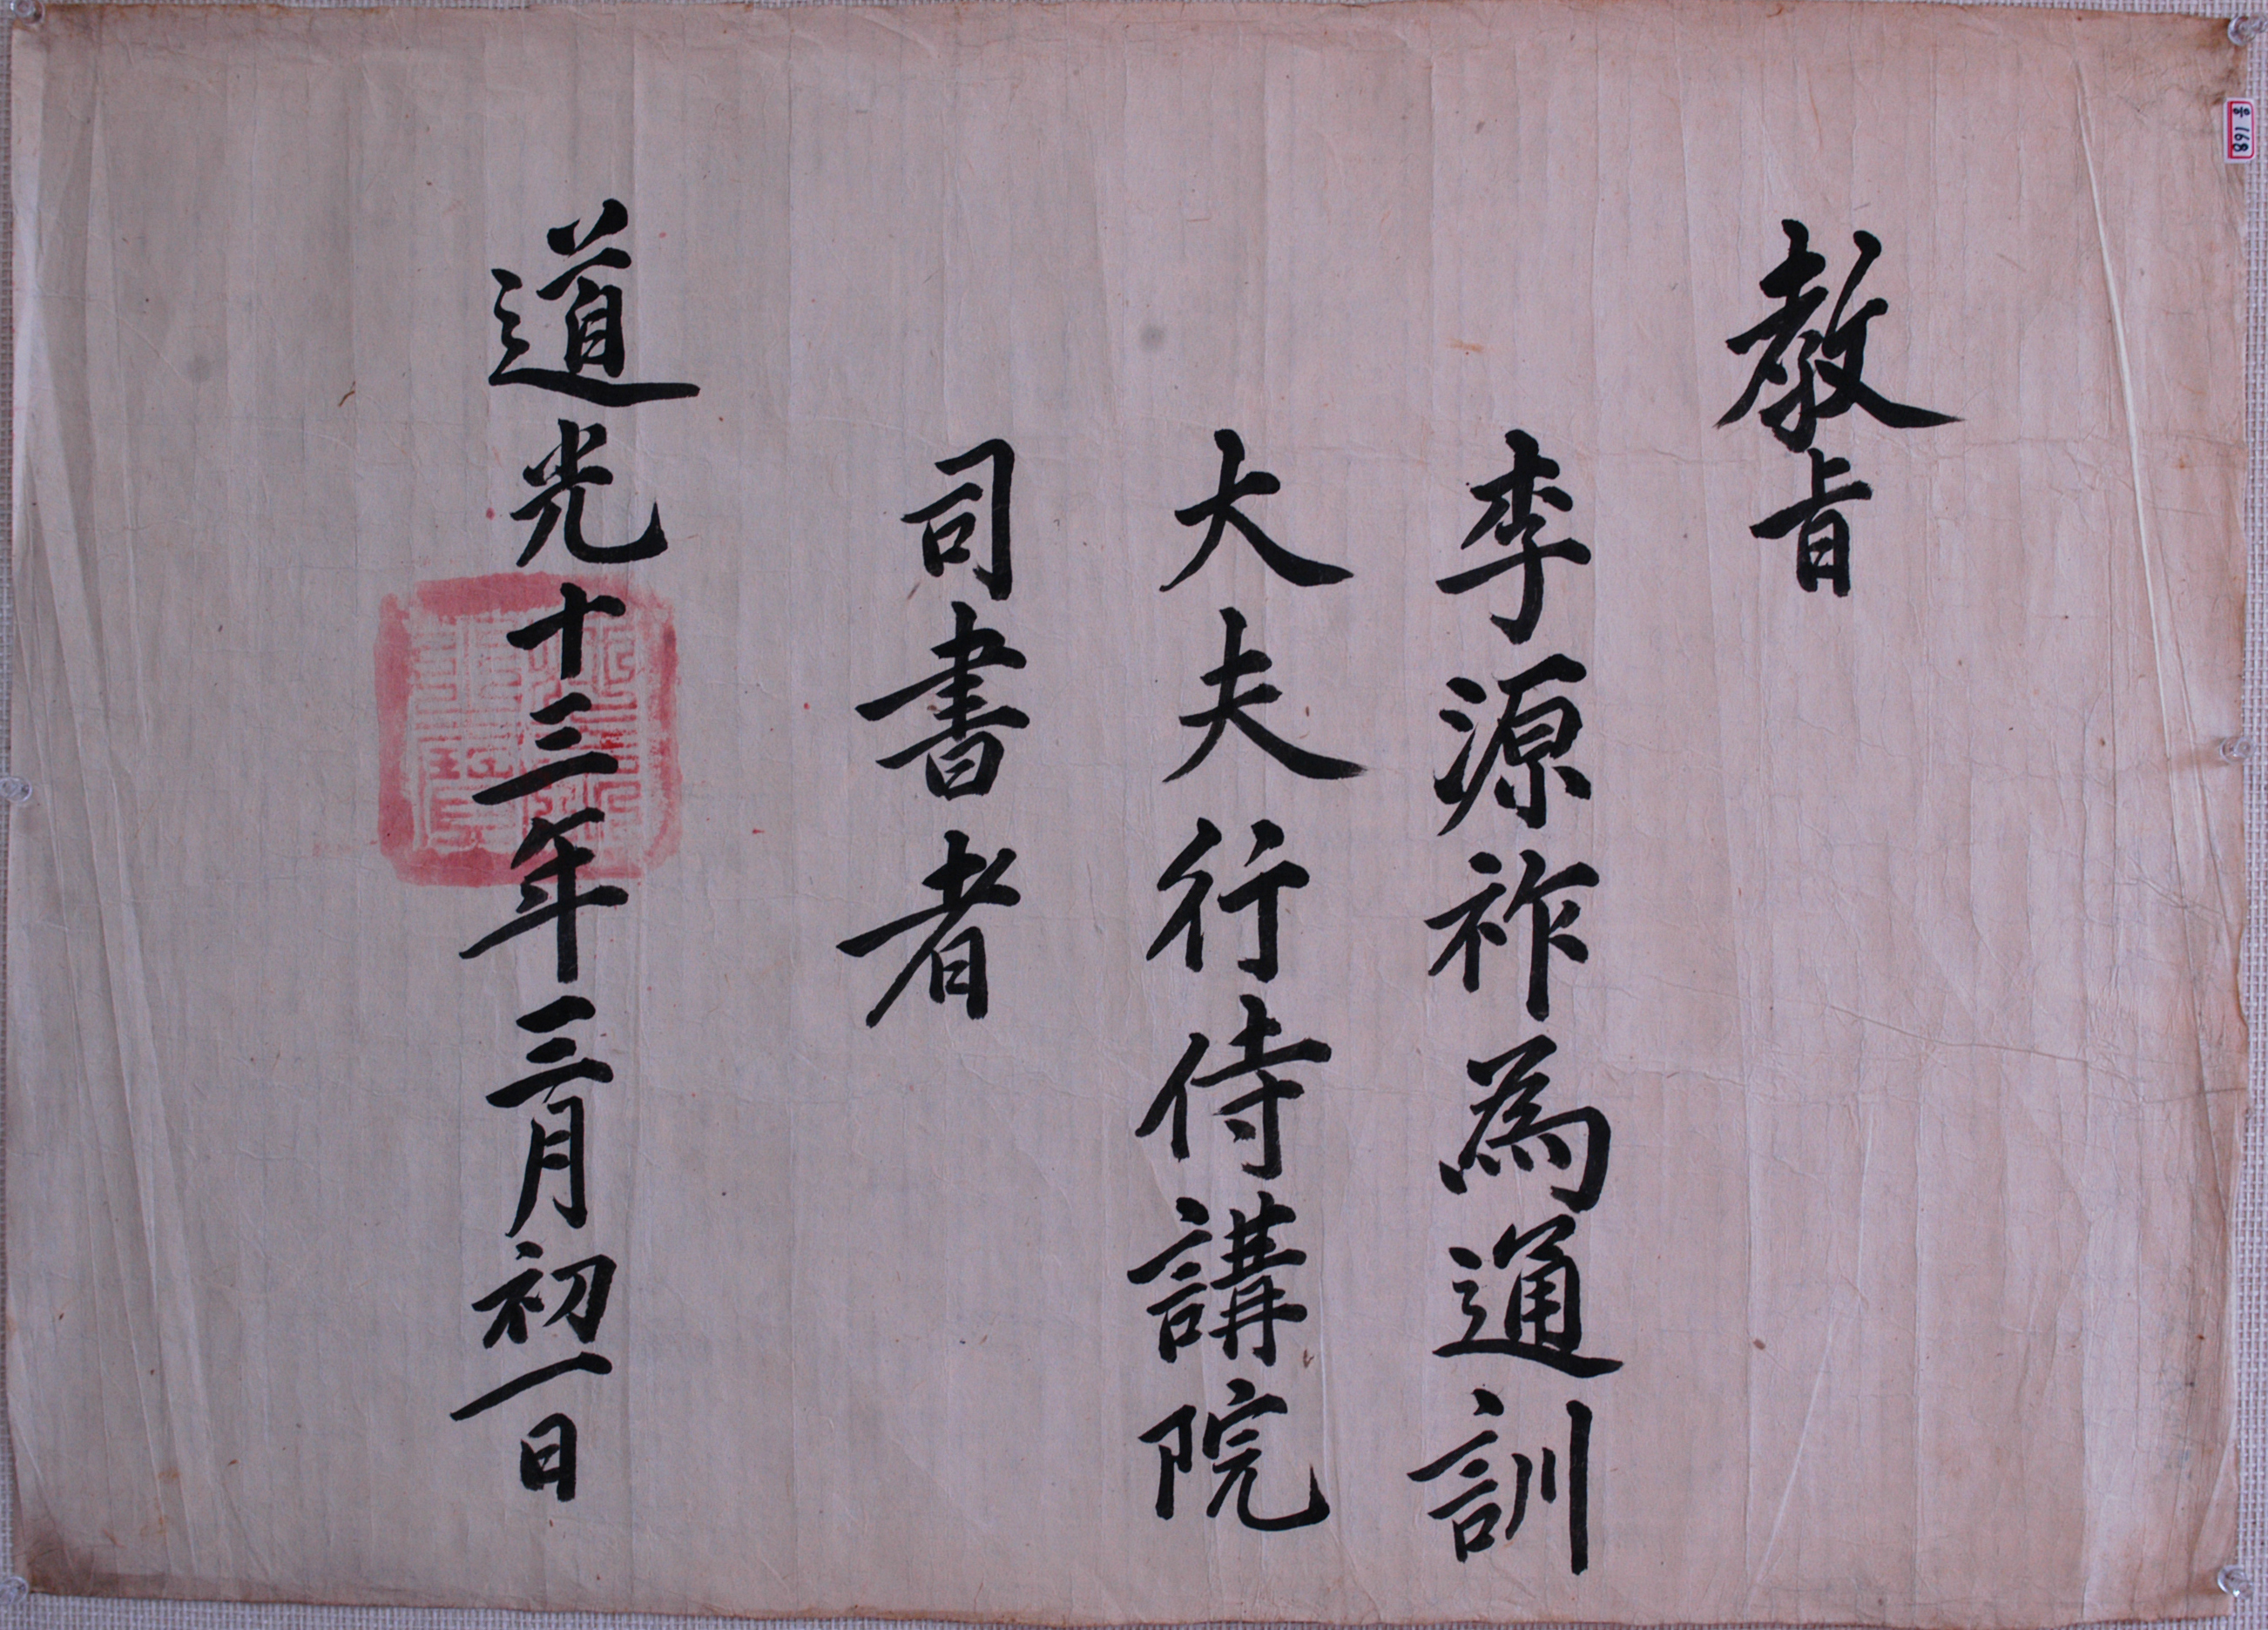 教旨
李源祚為通訓
大夫行侍講院
司書者
道光十三年三月初一日
168